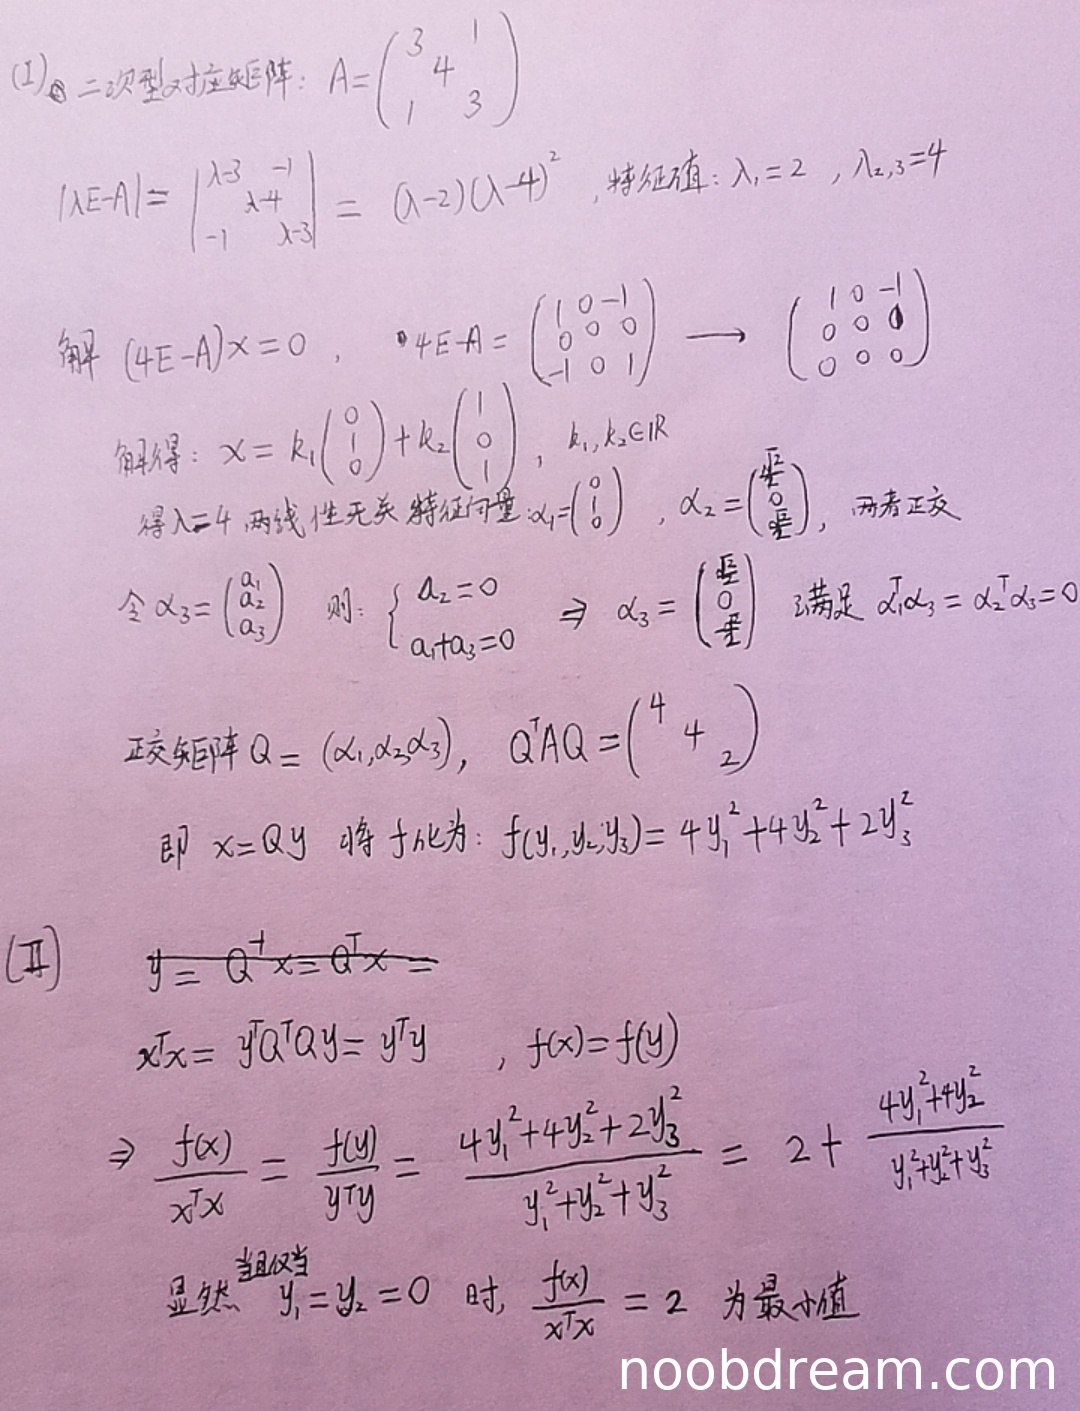 (I) 二次型对应矩阵: A = ( 3 1 4 1 3 )
|λE-A| = | λ-3 -1 λ-4 -1 λ-3 | = (λ-2)(λ-4)² , 特征值: λ₁=2 , λ₂,₃=4
解 (4E-A)x=0 , 4E-A = ( 1 0 -1 0 0 0 -1 0 1 ) → ( 1 0 -1 0 0 0 0 0 0 )
解得: x = k₁( 0 1 0 ) + k₂( 1 0 1 ) , k₁, k₂∈R
得λ=4 两线性无关特征向量: α₁=( 0 1 0 ) , α₂=( √2/2 0 √2/2 ) , 两者正交
令 α₃=( a₁ a₂ a₃ ) 则: { a₂=0 a₁+a₃=0 ⇒ α₃=( √2/2 0 -√2/2 ) 满足 α₁ᵀα₃ = α₂ᵀα₃=0
正交矩阵 Q = (α₁,α₂,α₃), QᵀAQ = ( 4 4 2 )
即 x=Qy 将 f 化为: f(y₁,y₂,y₃) = 4y₁²+4y₂²+2y₃²
(Ⅱ) y = Q⁻¹x = Qᵀx =
xᵀx = yᵀQᵀQy = yᵀy , f(x)=f(y)
⇒ f(x)/xᵀx = f(y)/yᵀy = (4y₁²+4y₂²+2y₃²)/(y₁²+y₂²+y₃²) = 2 + (4y₁²+4y₂²)/(y₁²+y₂²+y₃²)
显然 当且仅当 y₁=y₂=0 时, f(x)/xᵀx = 2 为最小值
noobdream.com